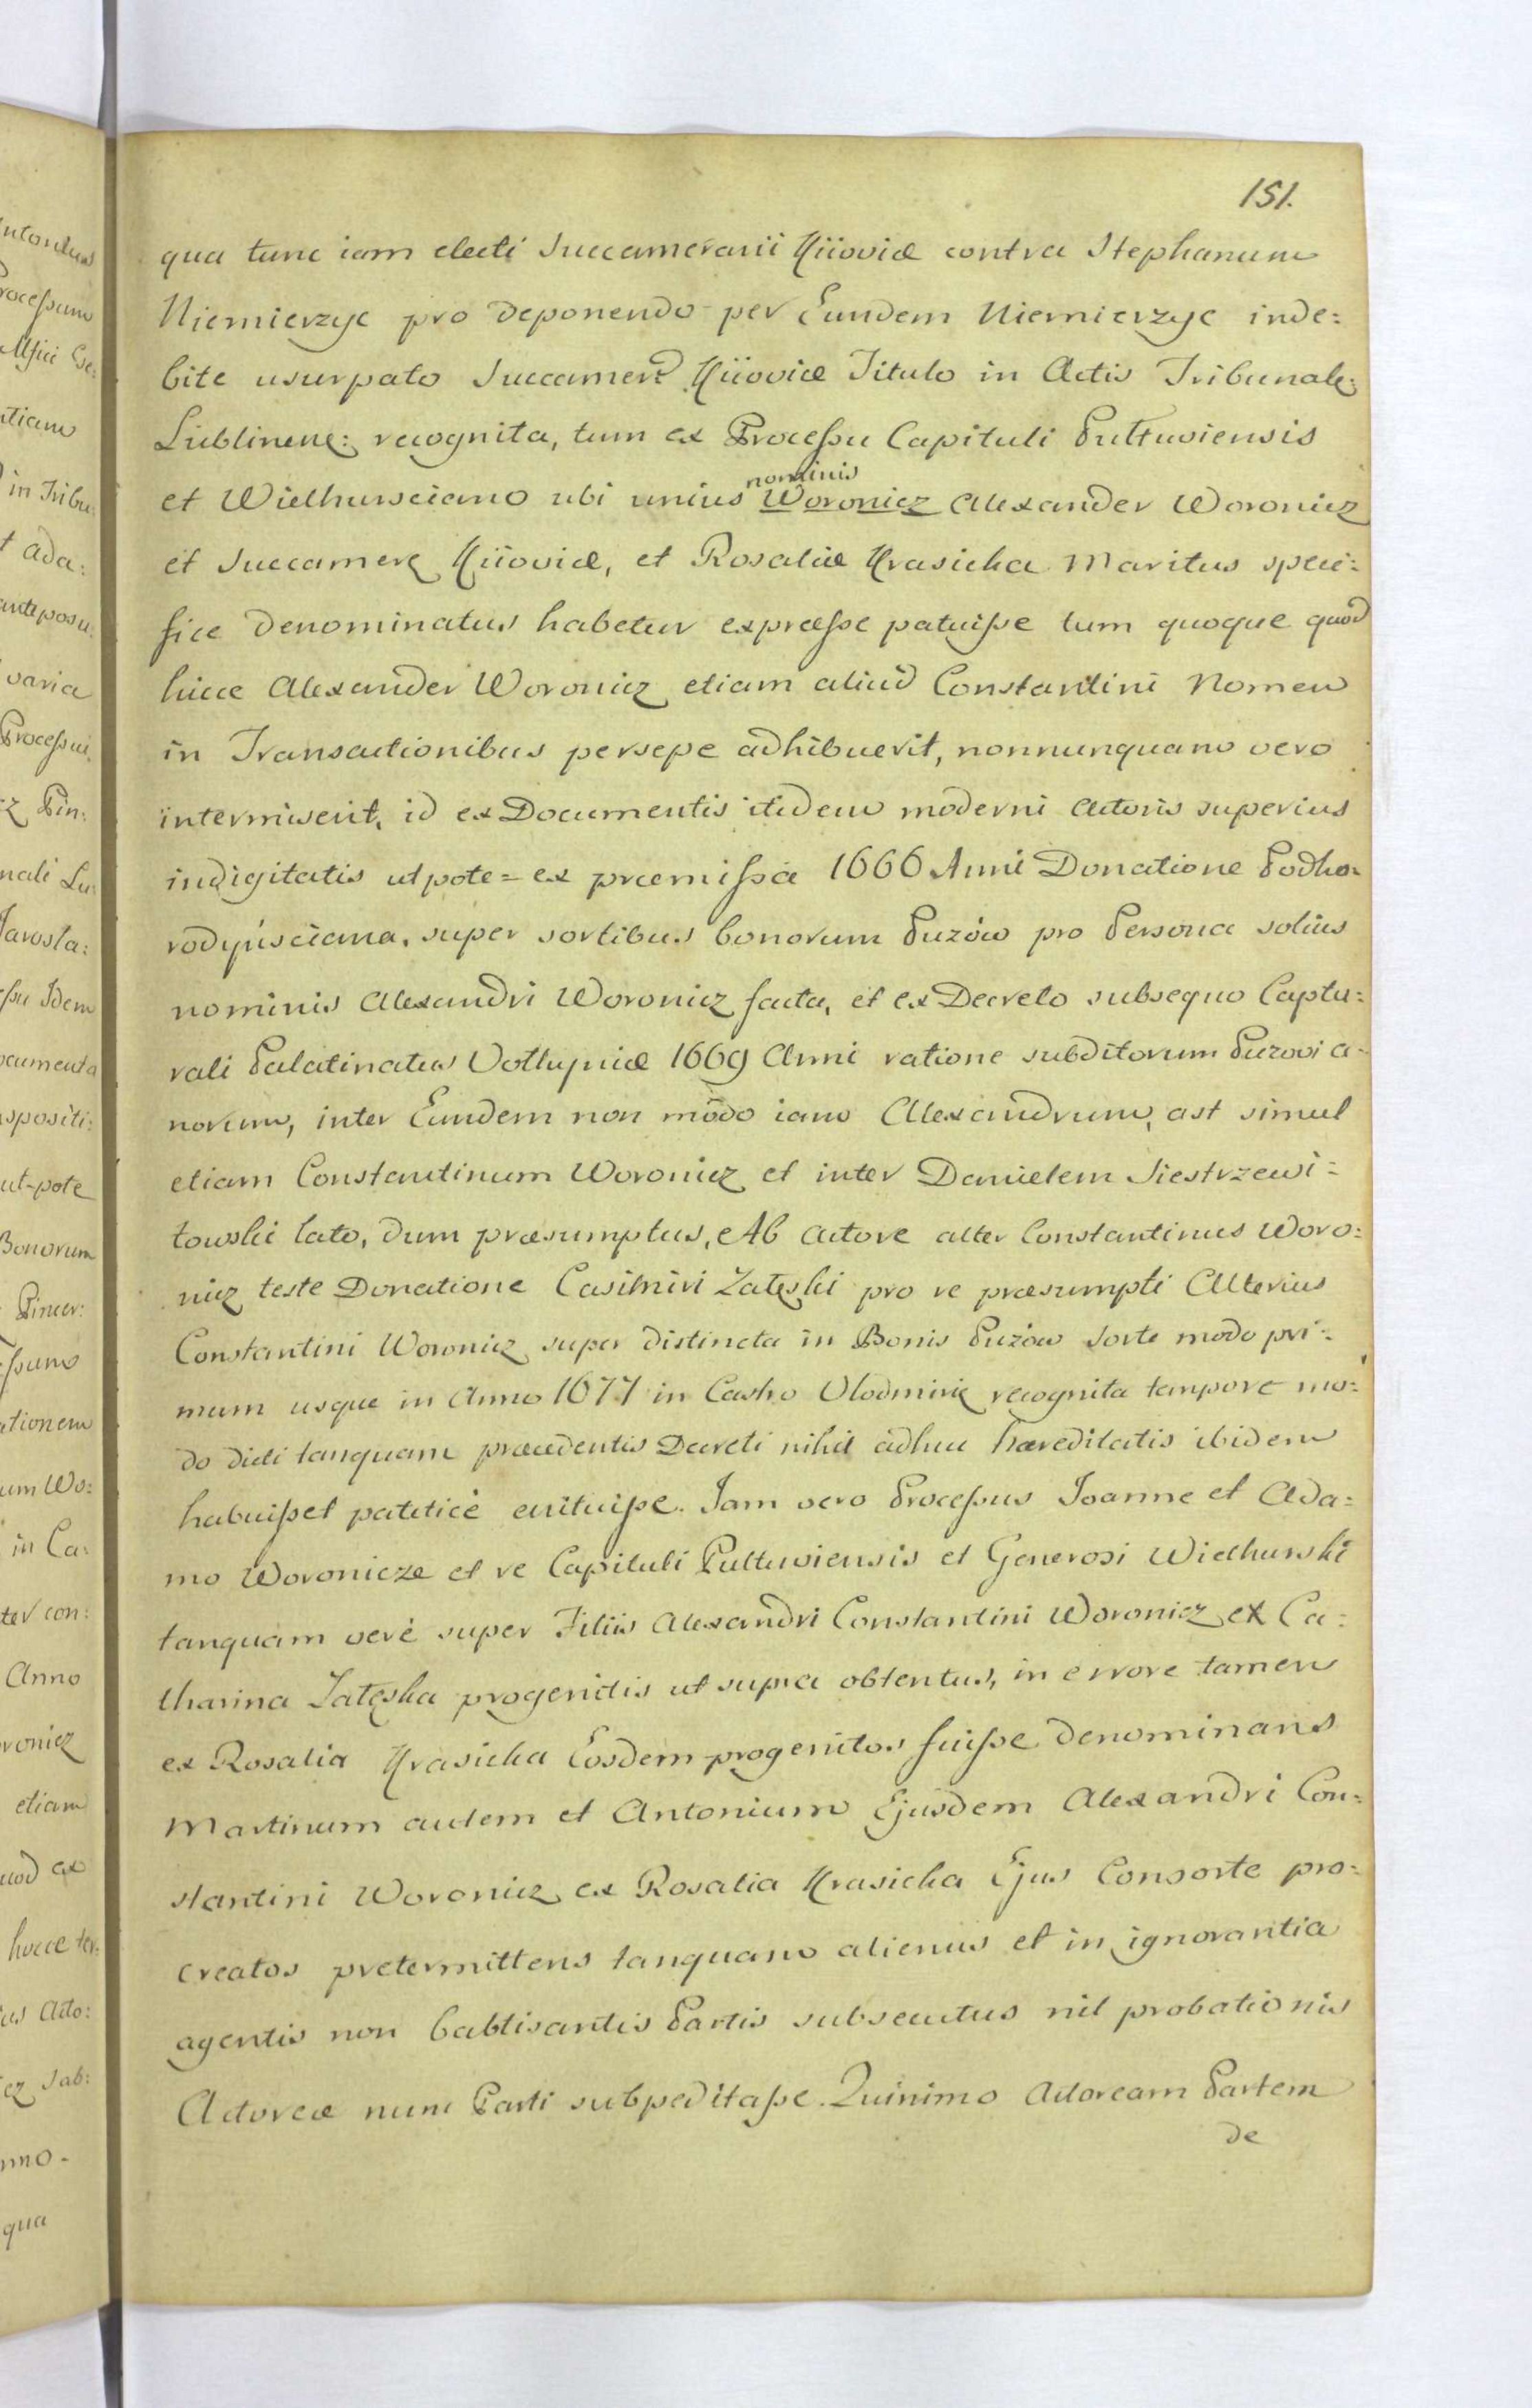 151.
qua tunc iam electi Succamerarii Kiioviæ contra Stephanum
Niemierzyc pro deponendo per Eundem Niemierzyc inde:
bite usurpato Succamerẽ Kiioviæ Titulo in Actis Tribunale:
Lublinene: recognita, tum ex Processu Capituli Pultuviensis
nominis
et Wielhursciano ubi unius Woronicz Alexander Woronicz
et Succamerę Kiioviæ, et Rosaliæ Krasicka Maritus speci:
fice denominatus habetur expresse patuisse tum quoque quod
hicce Alexander Woronicz etiam aliud Constantini Nomen
in Transactionibus persepe adhibuerit, nonnunquam vero
intermiserit, id ex Documentis itidem moderni Actoris superius
indigitatis utpote = ex præmissa 1666 Anni Donatione Podho:
rodyńsciana, super sortibus bonorum Puzów pro Persona solius
nominis Alexandri Woronicz facta, et ex Decreto subsequo Captu:
rali Palatinatus Volhyniæ 1669 Anni ratione subditorum Puzovia-
norum, inter Eundem non modo iam Alexandrum, ast simul
etiam Constantinum Woronicz et inter Danielem Siestrzewi:
towski lato, dum præsumptus, Ab Actore alter Constantinus Woro:
nicz teste Donatione Casimiri Załęski pro re præsumpti Alterius
Constantini Woronicz super distincta in Bonis Puzów Sorte modo pri:
mum usque in Anno 1677 in Castro Vlodimirię recognita tempore mo:
do dicti tanquam præcedentis Decreti nihil adhuc hæreditatis ibidem
habuisset patetice enituisse. Jam vero Processus Joanne et Ada:
mo Woronicze et re Capituli Pultuviensis et Generosi Wielhurski
tanquam verè super Filiis Alexandri Constantini Woronicz ex Ca:
tharina Załęska progenitis ut supra obtentus, in errore tamen
ex Rosalia Krasicka Eosdem progenitos fuisse denominans
Martinum autem et Antonium Ejusdem Alexandri Con:
stantini Woronicz ex Rosalia Krasicka Ejus Consorte pro:
creatos pretermittens tanquam alienus et in ignorantia
agentis non babtisantis Partis subsecutus nil probationis
Actoreæ nunc Parti subpeditasse. Quinimo Actoream Partem
de